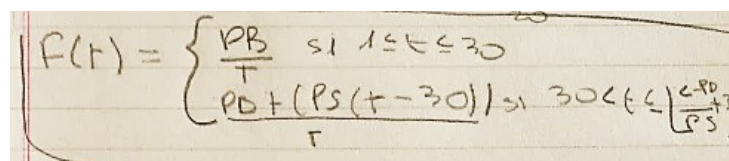 F(t) = { PB/T si 1≤t≤30
PD+(PS(t-30))/T si 30<t≤